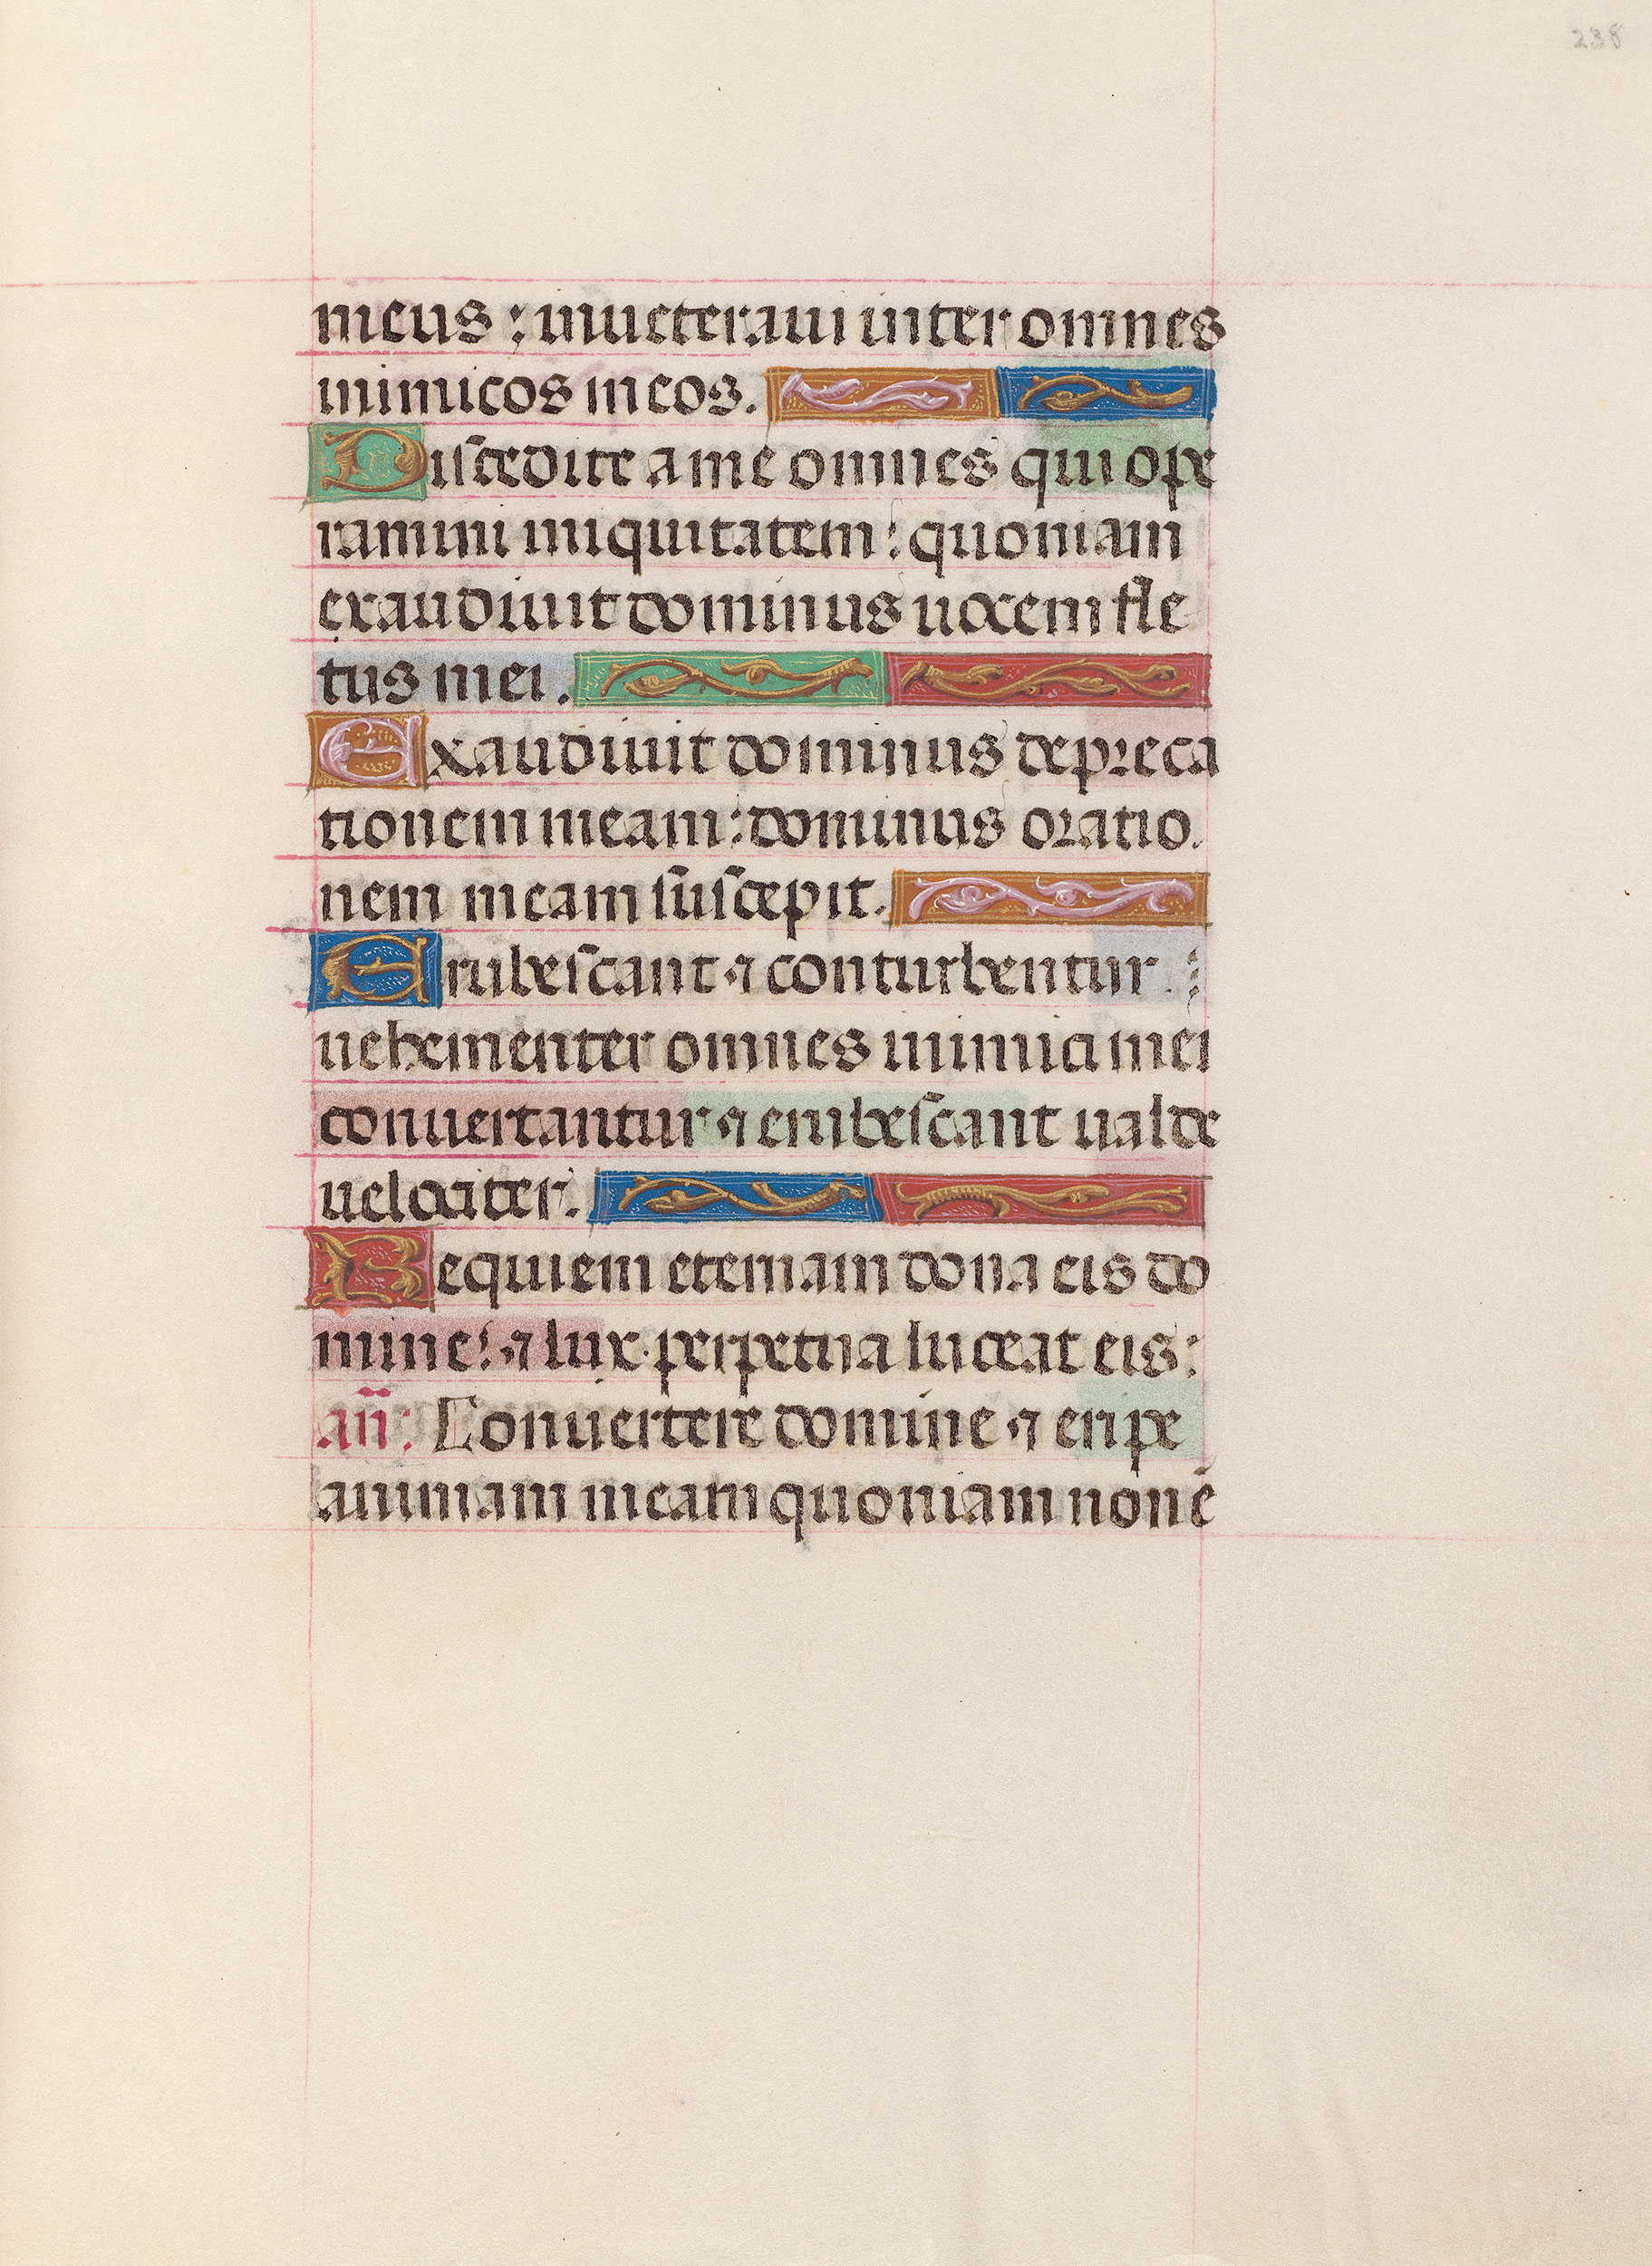 238
meus : inueteraui inter omnes
inimicos meos.
Discedite a me omnes qui ope
ramini iniquitatem : quoniam
exaudiuit dominus uocem fle
tus mei.
Exaudiuit dominus depreca
tionem meam : dominus oratio.
nem meam suscepit.
Erubescant ⁊ conturbentur :
uehementer omnes inimici mei
conuertantur ⁊ erubescant ualde
uelociter.
Requiem eternam dona eis do
mine : ⁊ lux perpetua luceat eis :
an̄ : Conuertere domine ⁊ eripe
animam meam quoniam non ē